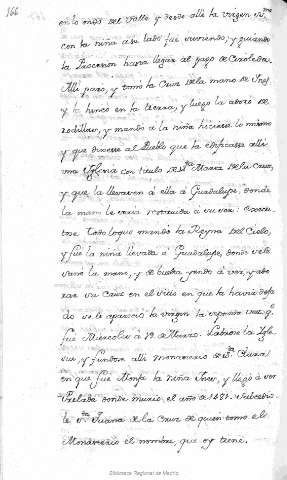 166
en lo ondo del Valle y desde alli la virgen SSma
con la niña a su lado fue viviendo, y guiando
la Procesion hasta llegar al pago de
Alli paro, y tomó la Cruz de la mano de Ynes
y la hincó en la tierra, y luego la adoró de
rodillas, y mandó a la niña hiciera lo mismo
y que dixesse al Pueblo que la edificassen alli
una Yglesia con titulo de Sta Maria de la Cruz,
y que la llevasen á ella á Guadalupe, donde
la mano le seria restituida a su ser.
Todo lo que mandó la Reyna del Cielo,
y fue la niña llevada à Guadalupe, donde
sano la mano, y de buelta yendo á
la Cruz en el sitio en que la havia
do se le aparecio la virgen la
fue Miercoles á 19 de Marzo. Labrose la Igle
sia, y fundose alli monasterio de Sta Clara
en que fue Monja la niña Ines, y llegó á ser
Prelada donde murió, el año de 1481.
le Sta Juana de la Cruz de quien tomó el
Monasterio el nombre, que oy tiene.
Biblioteca Regional de Madrid